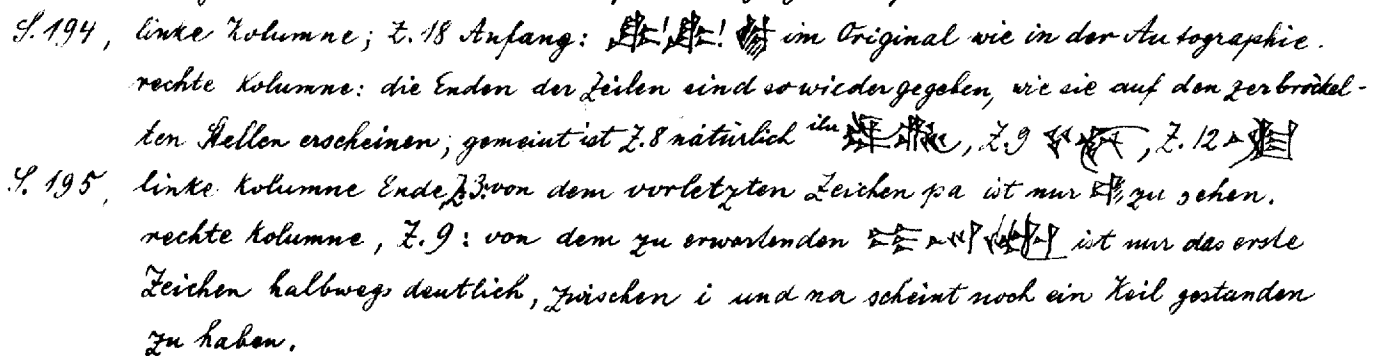 S. 194, linke Kolumne; Z. 18 Anfang: ! ! im Original wie in der Autographie.
rechte Kolumne: die Enden der Zeilen sind so wiedergegeben, wie sie auf den zerbröckel-
ten Stellen erscheinen; gemeint ist Z. 8 natürlich ilu , Z. 9 , Z. 12
S. 195, linke Kolumne Ende Z. 3: von dem vorletzten Zeichen pa ist nur zu sehen.
rechte Kolumne, Z. 9: von dem zu erwartenden ist nur das erste
Zeichen halbwegs deutlich, zwischen i und na scheint noch ein Keil gestanden
zu haben.